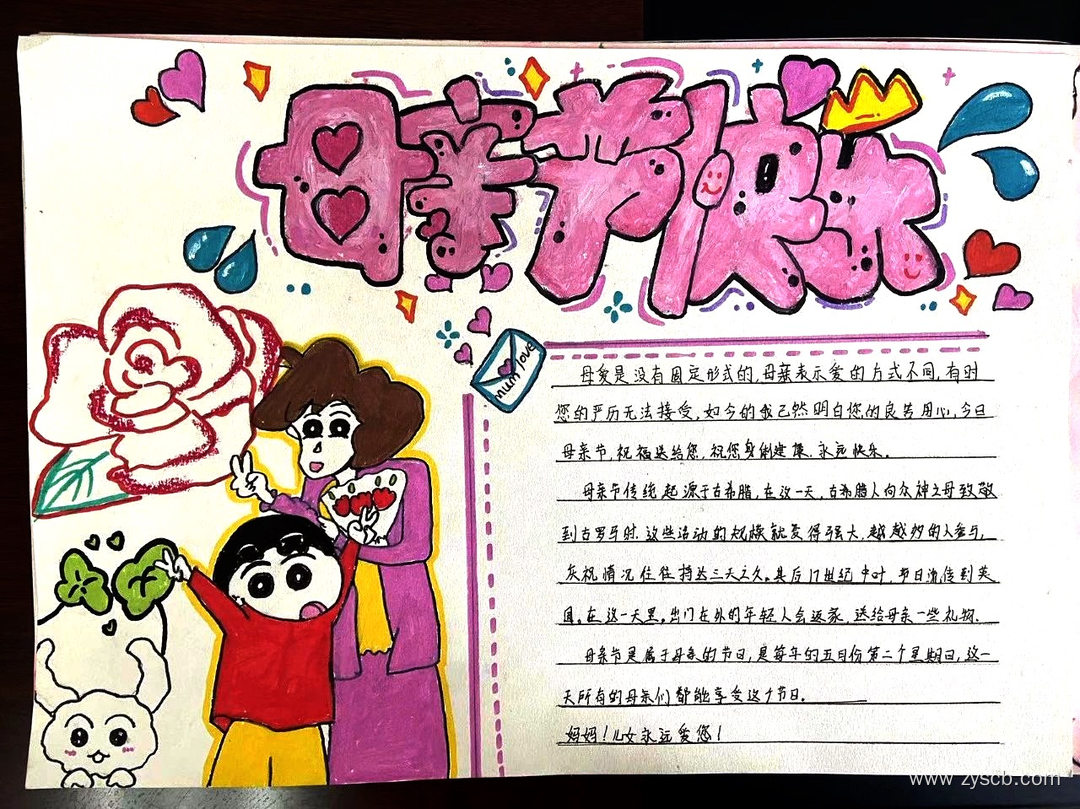 母亲节快乐
mum love
母爱是没有固定形式的,母亲表示爱的方式不同,有时
您的严历无法接受,如今的我已然明白您的良苦用心,今日
母亲节,祝福送给您,祝您身体健康、永远快乐。
母亲节传统起源于古希腊,在这一天,古希腊人向众神之母致敬
到古罗马时.这些活动的规模就变得强大,越越多的人参与,
庆祝情况往往持达三天之久。其后17世纪中叶,节日流传到英
国。在这一天里。出门在外的年轻人会返家,送给母亲一些礼物.
母亲节是属于母亲的节日,是每年的五月份第二个星期日,这一
天所有的母亲们都能享受这个节日。
妈妈!儿女永远爱您!
www.zyscb.com